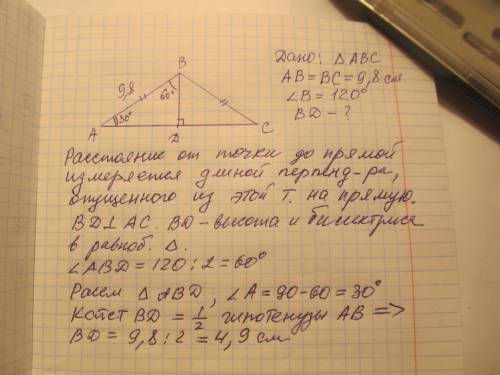 B
9,8
60°
30°
A
D
C
Дано: △ABC
AB = BC = 9,8 см
∠B = 120°
BD - ?
Расстояние от точки до прямой
измеряется длиной перпенд-ра,
опущенного из этой т. на прямую.
BD⊥AC. BD - высота и биссектриса
в равноб. △.
∠ABD = 120:2 = 60°
Рассм △ABD; ∠A = 90-60 = 30°
Катет BD = 1/2 гипотенузы AB =>
BD = 9,8:2 = 4,9 см